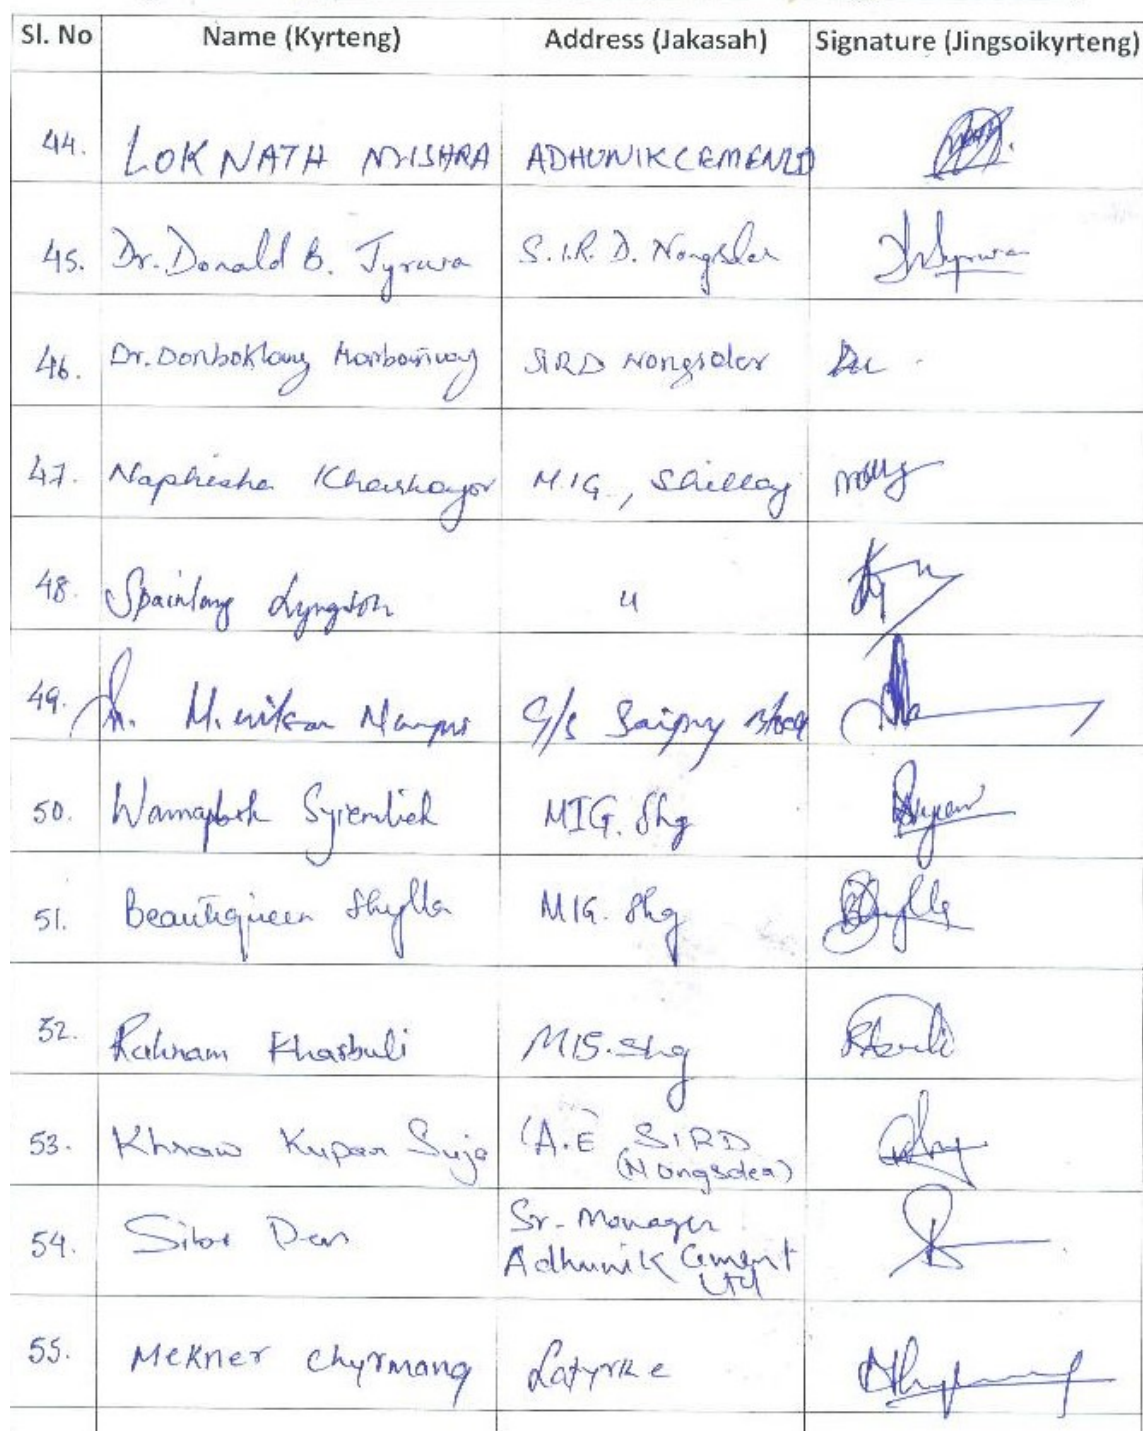 Sl. No Name (Kyrteng) Address (Jakasah) Signature (Jingsoikyrteng)
44. LOKNATH MISHRA ADHUNIK CEMENT
45. Dr. Donald B. Tyrwa S.I.R.D. Nongsder
46. Dr. Donboklang SIRD Nongsder
47. Naphisha Kharkongor M.I.G., Shillong
48. Spainlang Lyngdoh "
49. M.
50. Wamaphoh Syiemlieh MIG. Shg
51. Beautiqueen Shylla MIG. Shg
52. Kharbuli MIG. Shg
53. Khraw Kupar Suja (A.E) SIRD
(Nongsder)
54. Sr. Manager
Adhunik Cement
Ltd
55. Mekner Chyrmang Latyrke